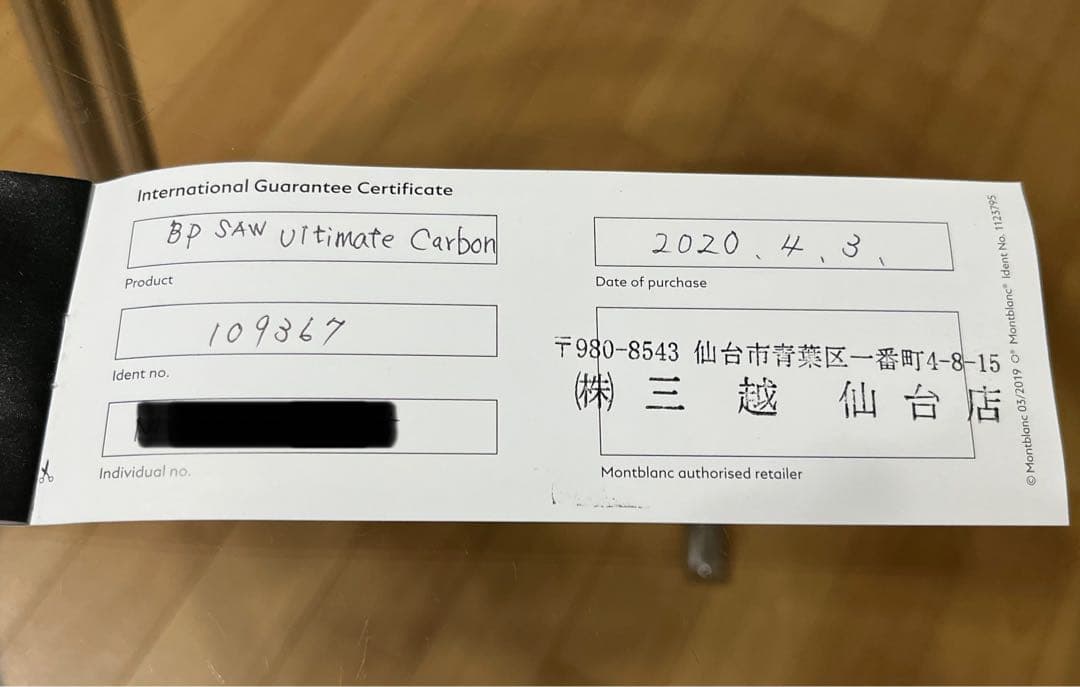 International Guarantee Certificate
BP SAW Ultimate Carbon
Product
109367
Ident no.
Individual no.
2020.4.3.
Date of purchase
〒980-8543 仙台市青葉区一番町4-8-15
㈱ 三越 仙台店
Montblanc authorised retailer
© Montblanc 03/2019 O® Montblanc® Ident No. 1123795